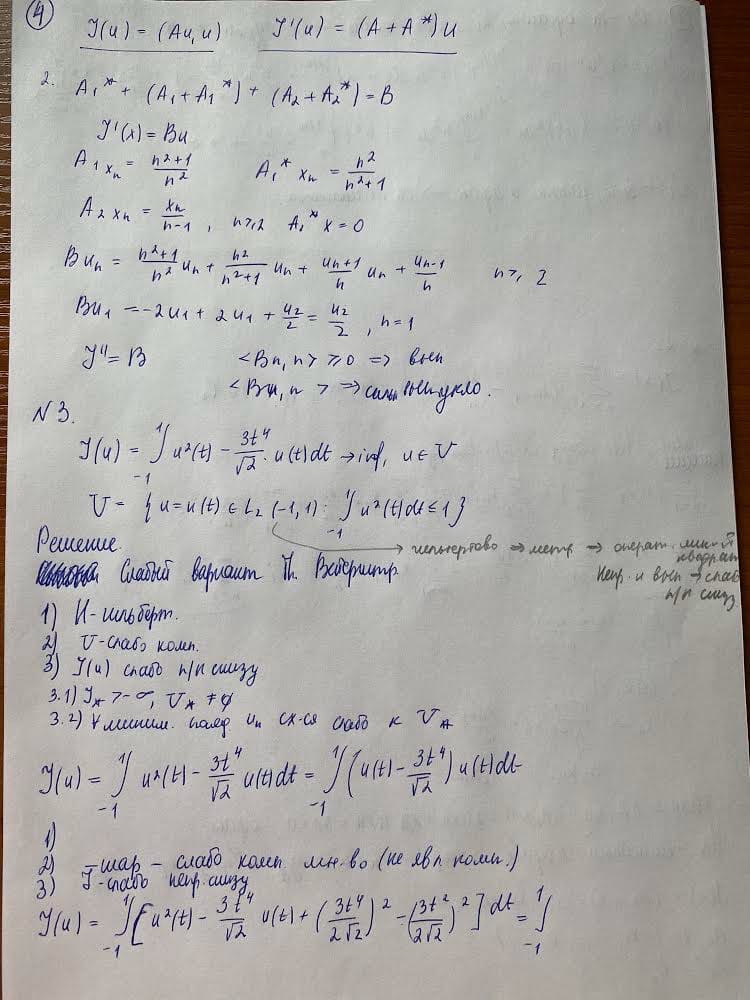 4
J(u) = (Au, u)    J'(u) = (A + A*)u
2. A₁* + (A₁ + A₁*) + (A₂ + A₂*) = B
J'(x) = Bu
A₁xₙ = (n²+1)/n²    A₁* xₙ = n²/(n²+1)
A₂xₙ = xₙ/(n-1), n≥2  A₁* x = 0
Buₙ = (n²+1)/n² uₙ + n²/(n²+1) uₙ + (uₙ+1)/n uₙ + uₙ₋₁/n    n≥ 2
Bu₁ = -2u₁ + 2u₁ + u₂/2 = u₂/2, n=1
J'' = B    <Bn, n> ≥ 0 => вып
<Bu, n > => сильн выпукло.
N 3.
J(u) = ∫₋₁¹ u²(t) - 3t⁴/√2 · u(t)dt → inf, u ∈ U
U = { u = u(t) ∈ L₂ (-1, 1) : ∫₋₁¹ u²(t)dt ≤ 1 }
→ гильбертово ⇒ метр → операт.
квадрат
Непр. и вып → слаб
п/н снизу
Решение.
Слабый вариант Т.
1) H - гильберт.
2) U - слабо комп.
3) J(u) слабо п/н снизу
3.1) J* > -∞, U* ≠ ∅
3.2) ∀ миним. послед uₙ сх-ся слабо к U*
J(u) = ∫₋₁¹ u²(t) - 3t⁴/√2 u(t)dt = ∫₋₁¹ (u(t) - 3t⁴/√2) u(t)dt
1)
2) - шар - слабо комп. мн-во (не явл комп.)
3) J - слабо непр. снизу
J(u) = ∫₋₁¹ [u²(t) - 3t⁴/√2 u(t) + (3t⁴/2√2)² - (3t²/2√2)²] dt = ∫₋₁¹